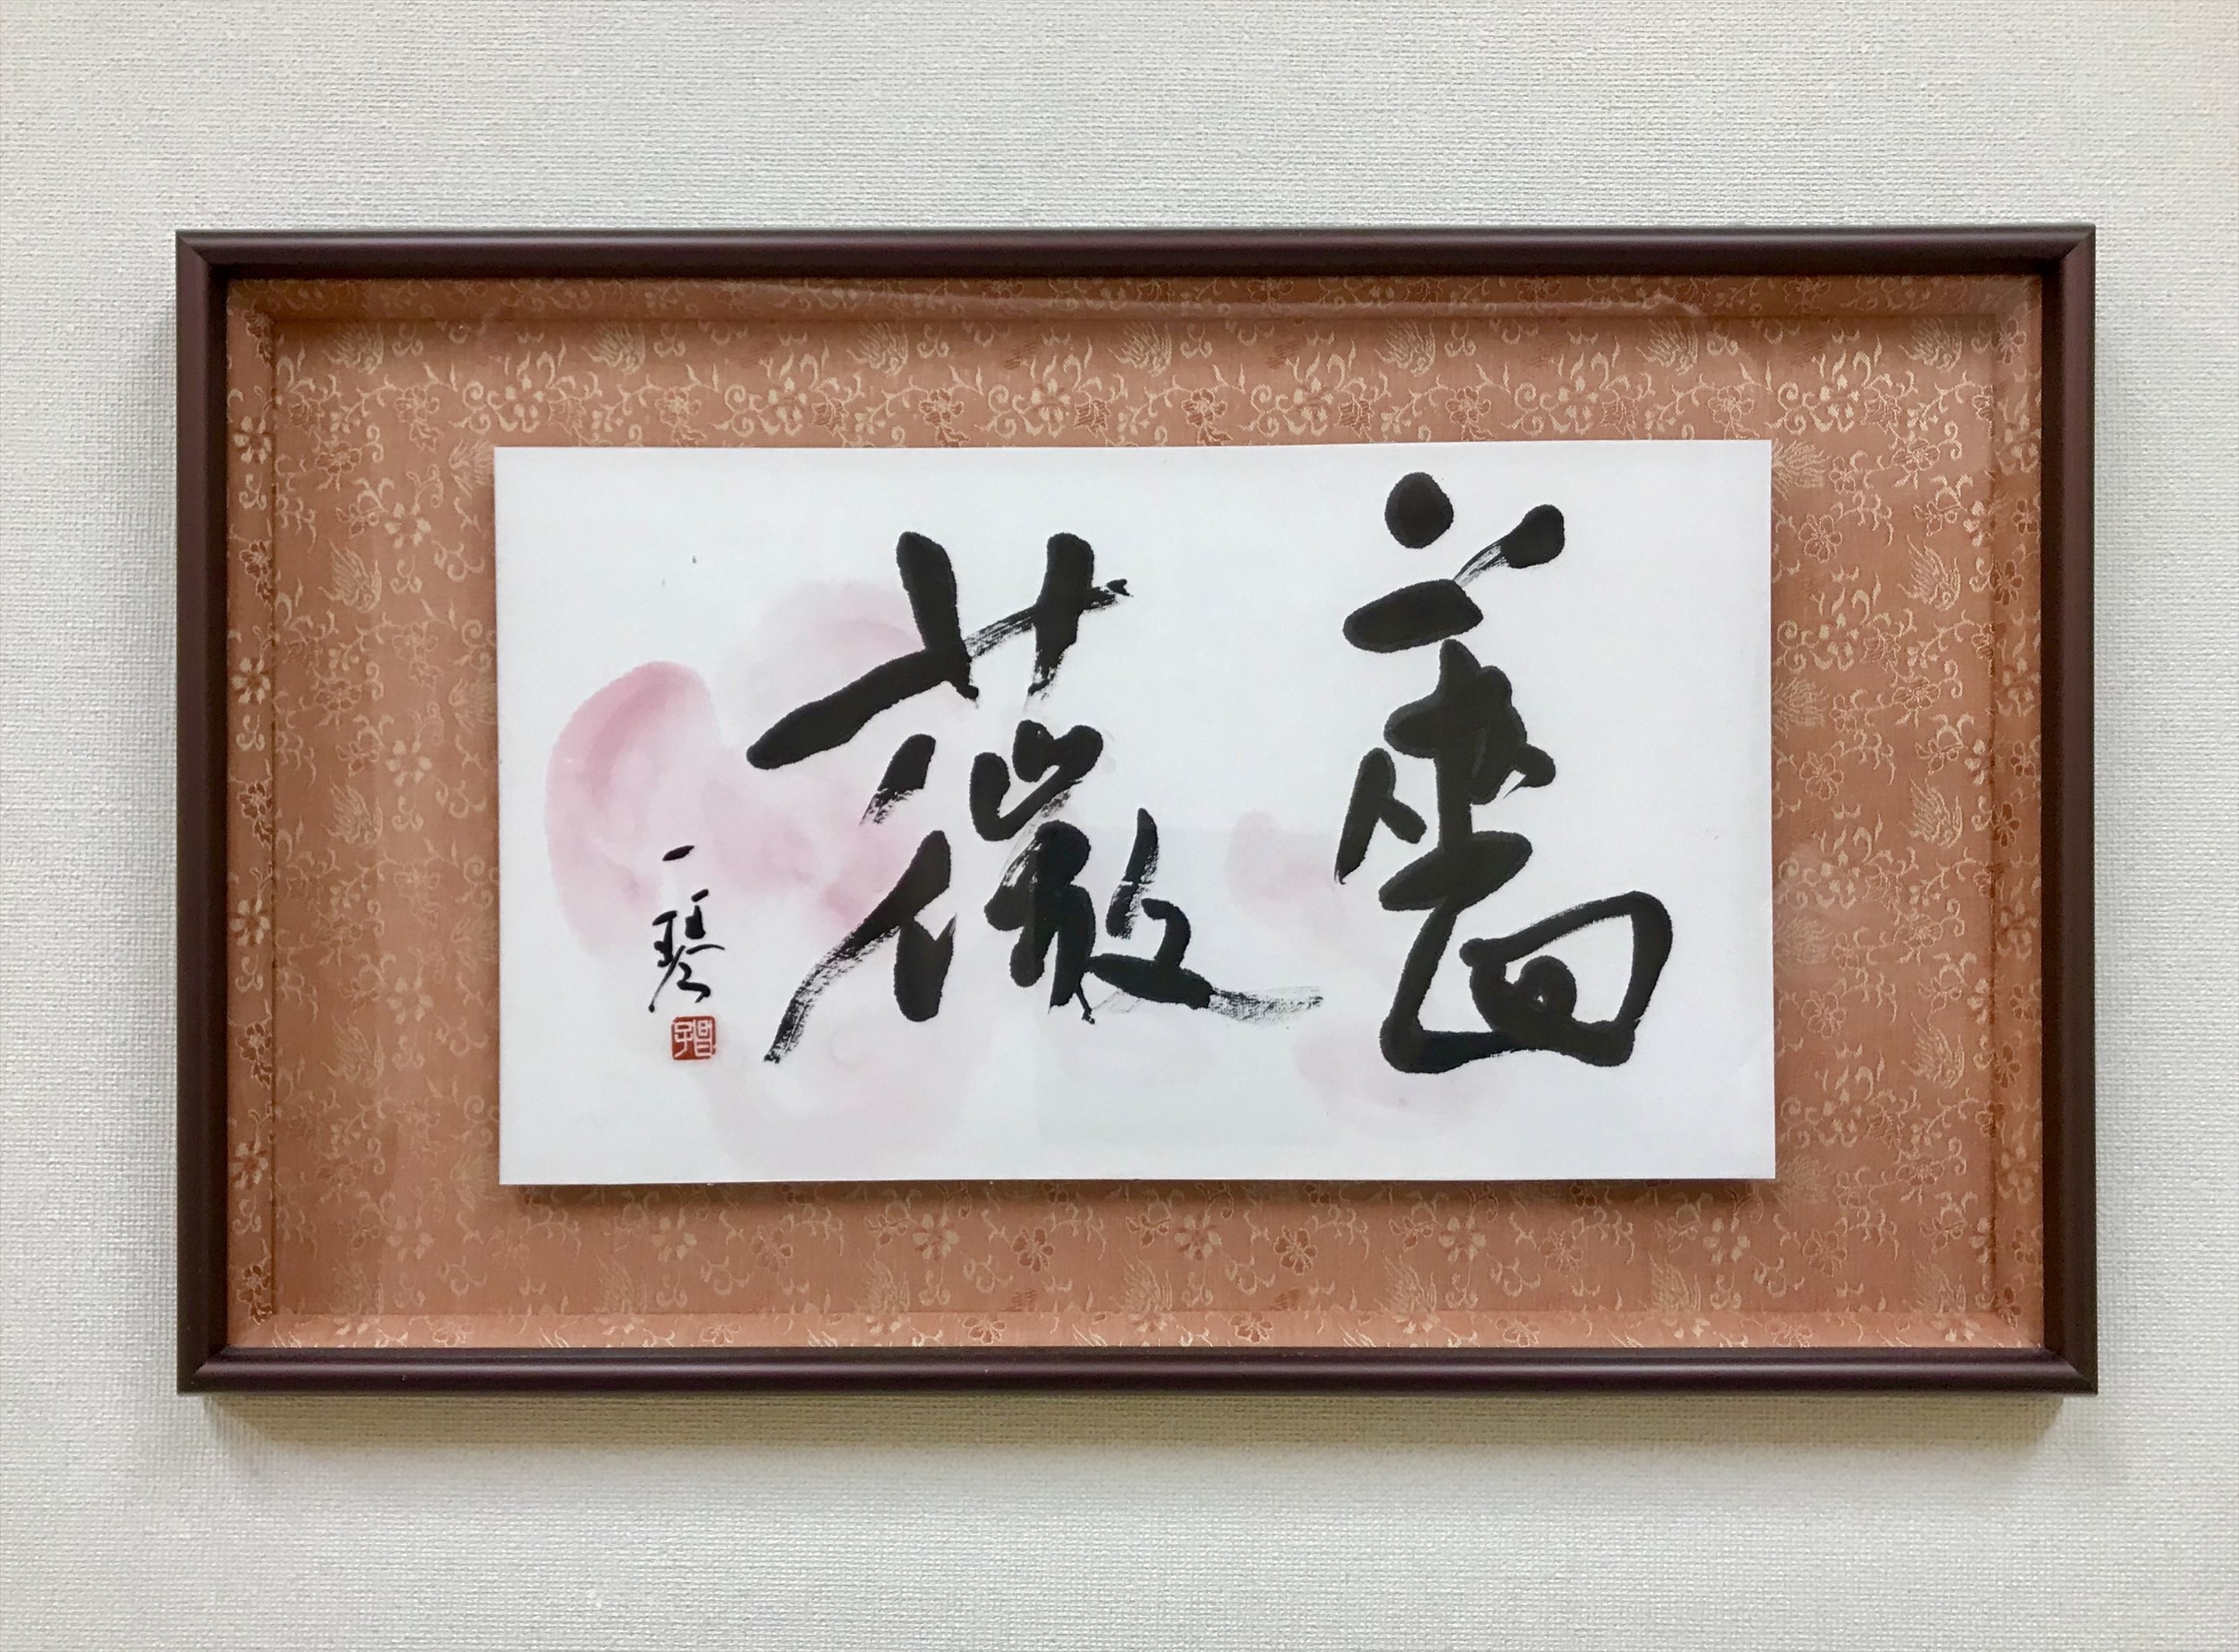 薔薇
一琴